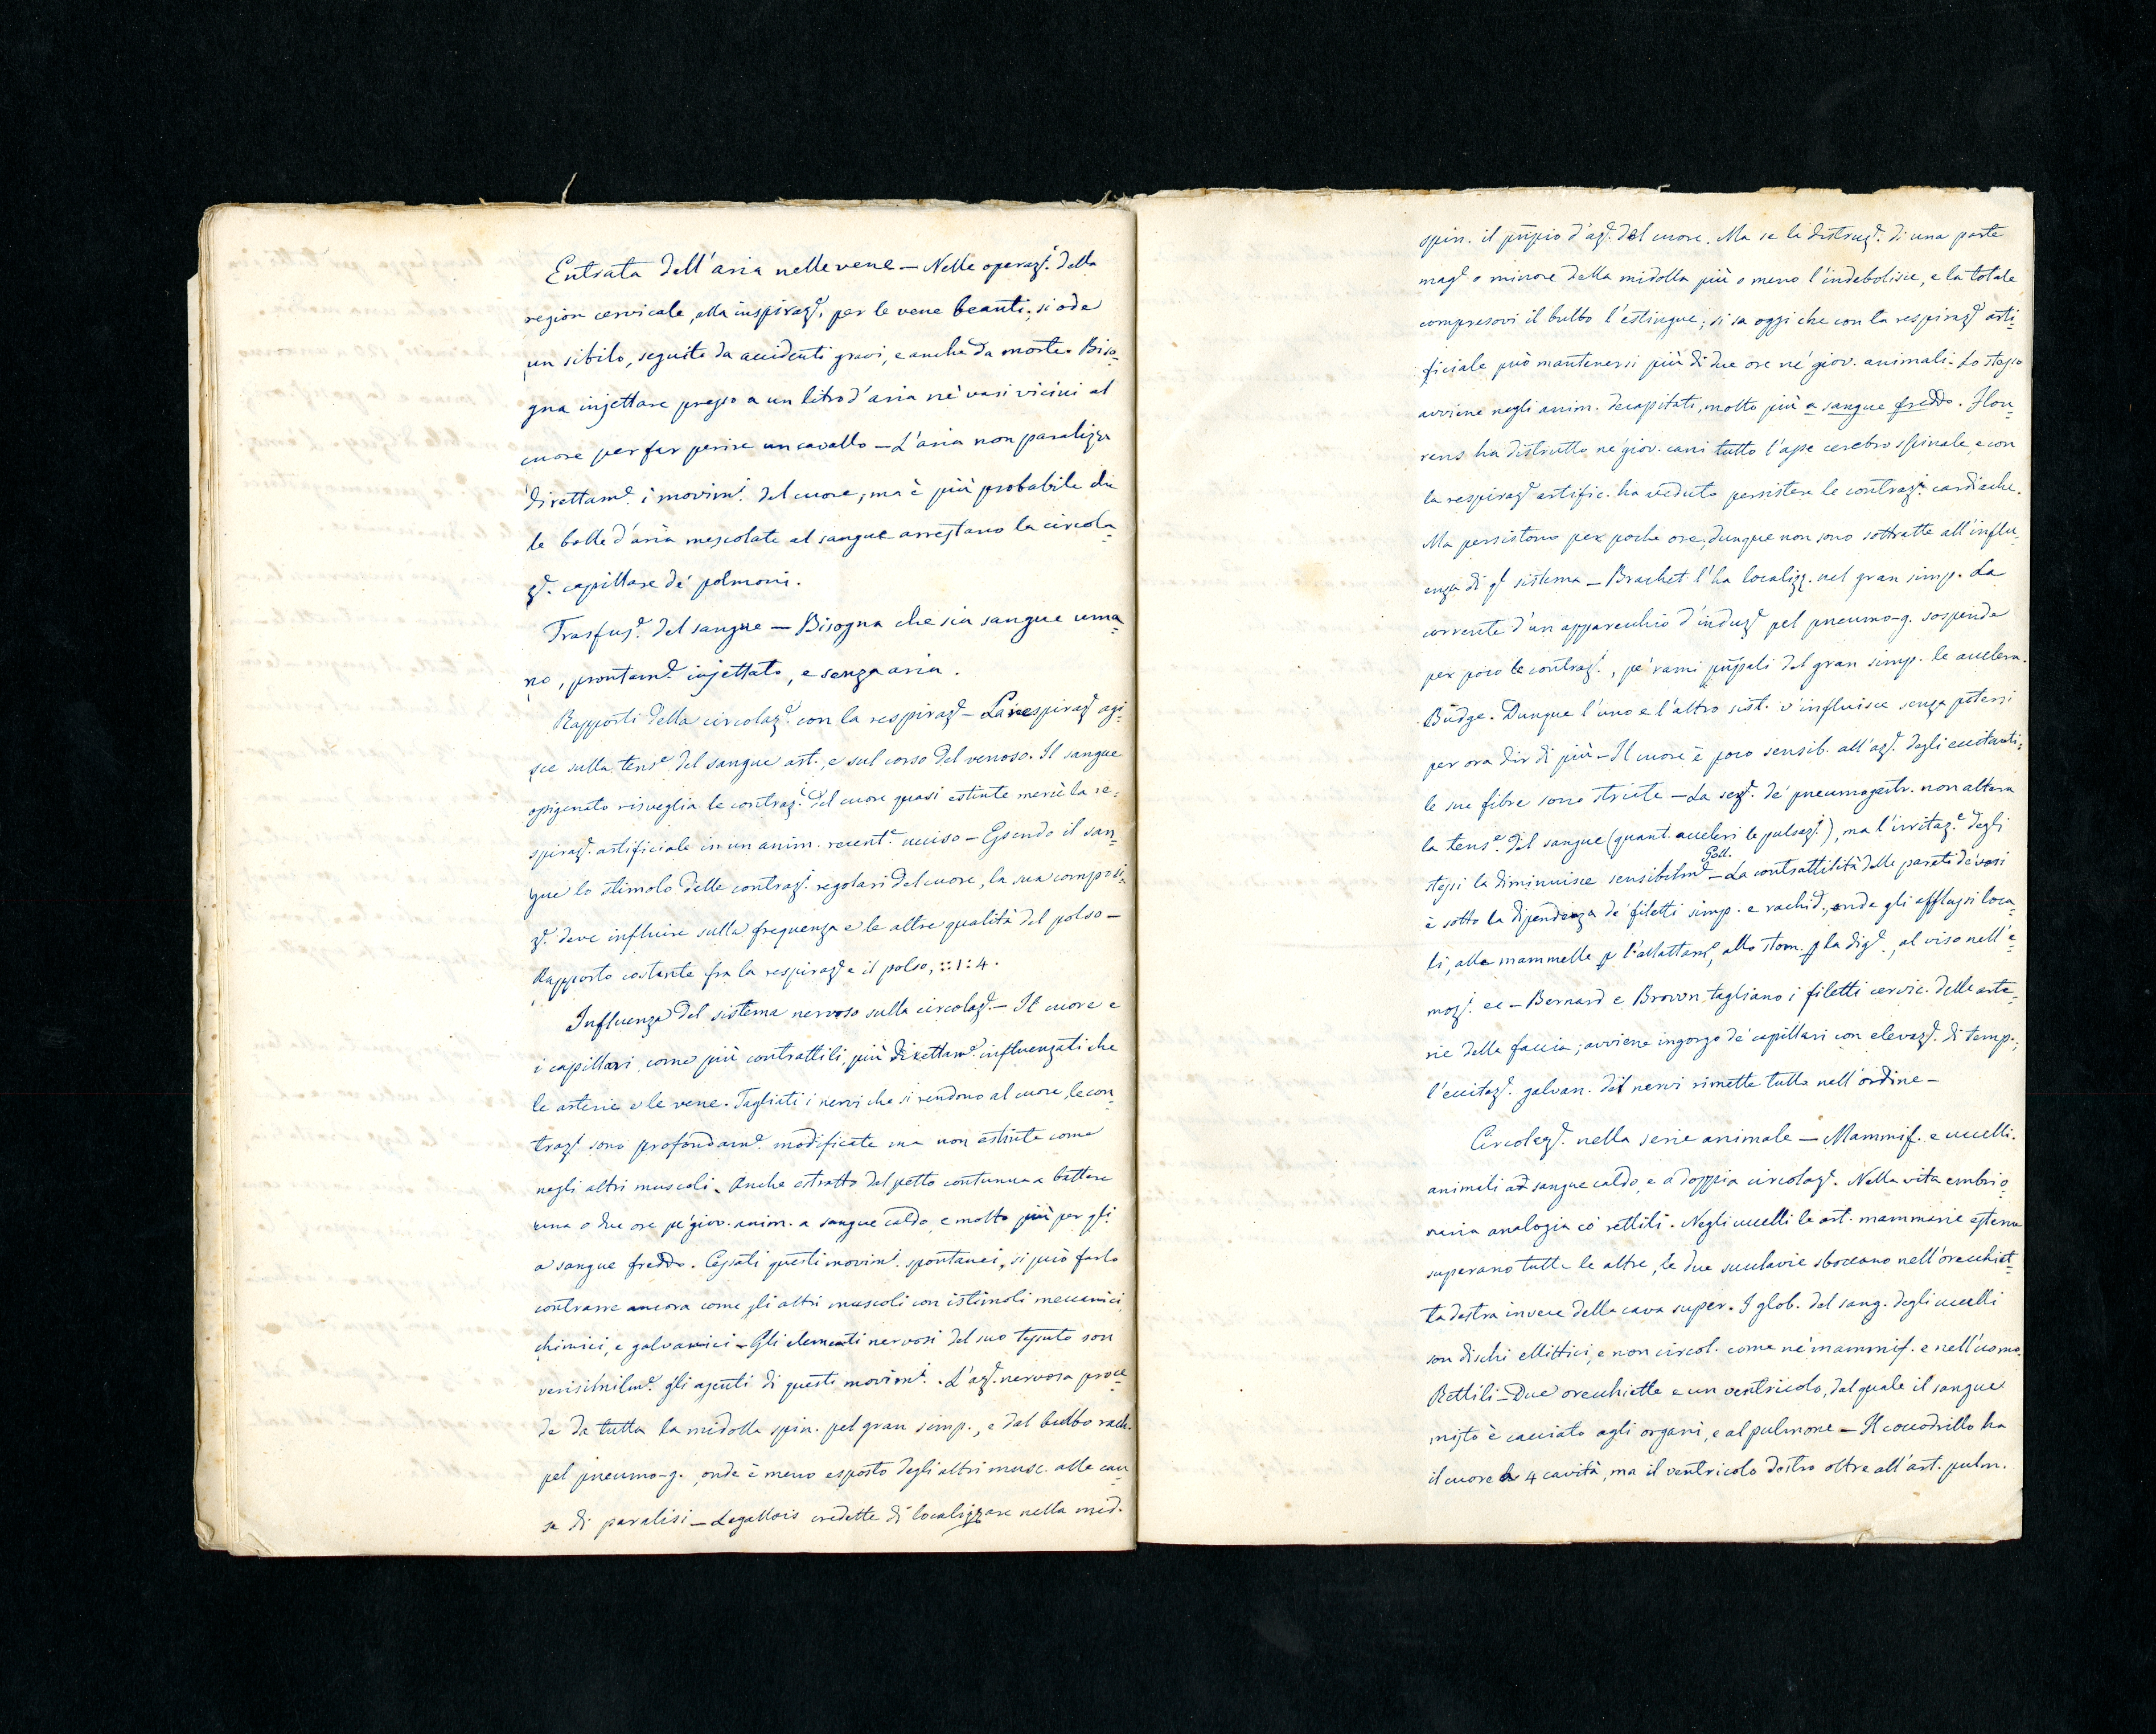 Entrata dell'aria nelle vene — Nelle operazi. della
region cervicale, alla inspiraze, per le vene beanti, si ode
un sibilo, seguito da accidenti gravi, e anche da morte. Biso=
gna injettare presso a un litro d'aria ne' vasi vicini al
cuore per far perire un cavallo — L'aria non paralizza
direttame. i movimi. del cuore, ma è più probabile che
le bolle d'aria mescolate al sangue arrestano la circola=
ze. capillare de' polmoni.
Trasfuse. del sangue — Bisogna che sia sangue uma=
no, prontame. injettato, e senza aria.
Rapporti della circolaze. con la respiraze — La respiraze agi=
sce sulla tense. del sangue art., e sul corso del venoso. Il sangue
ossigenato risveglia le contrazi. del cuore quasi estinte mercè la re=
spiraze. artificiale in un anim. recente. ucciso — Essendo il san=
gue lo stimolo delle contrazi. regolari del cuore, la sua composi=
ze. deve influire sulla frequenza e le altre qualità del polso —
Rapporto costante fra la respiraze e il polso, ::1:4.
Influenza del sistema nervoso sulla circolaze. — Il cuore e
i capillari come più contrattili, più direttame. influenzati che
le arterie e le vene. Tagliati i nervi che si rendono al cuore, le con=
trazi. sono profondame. modificate ma non estinte come
negli altri muscoli. Anche estratto dal petto continua a battere
una o due ore pe' giov. anim. a sangue caldo, e molto più per gli
a sangue freddo. Cessati questi movimi. spontanei, si può farlo
contrarre ancora come gli altri muscoli con istimoli meccanici,
chimici, e galvanici — Gli elementi nervosi del suo tessuto son
verisimilme. gli agenti di questi movimi. L'aze. nervosa proce=
de da tutta la midolla spin. pel gran simp., e dal bulbo rach.
pel pneumo-g., onde è meno esposto degli altri musc. alle cau=
se di paralisi — Legallois credette di localizzare nella mid.
spin. il pñpio d'aze. del cuore. Ma se la distruze. di una parte
mage. o minore della midolla più o meno l'indebolisce, e la totale
compresovi il bulbo l'estingue; si sa oggi che con la respiraze arti=
ficiale può mantenersi più di due ore ne' giov. animali. Lo stesso
avviene negli anim. decapitati, molto più a sangue freddo. Flou=
rens ha distrutto ne' giov. cani tutto l'asse cerebro spinale, e con
la respiraze artific. ha veduto persistere le contrazi. cardiache.
Ma persistono per poche ore; dunque non sono sottratte all'influ=
enza di qto sistema — Brachet l'ha localizz. nel gran simp. La
corrente d'un apparecchio d'induze pel pneumo-g. sospende
per poco le contrazi., pe' rami pñpali del gran simp. le accelera.
Büdge. Dunque l'uno e l'altro sist. v'influisce senza potersi
per ora dir di più — Il cuore è poco sensib. all'aze. degli eccitanti;
le sue fibre sono striate — La seze. de' pneumogastr. non altera
la tense. del sangue (quant. acceleri le pulsazi.), ma l'irritaze. degli
stessi la diminuisce sensibilme — Goll. La contrattilità delle pareti de' vasi
è sotto la dipendenza de' filetti simp. e rachid., onde gli afflussi loca=
li, alle mammelle p l'allattame, allo stom. p la dige., al viso nell'e=
mozi. ec — Bernard e Brown tagliano i filetti cervic. delle arte=
rie della faccia; avviene ingorgo de' capillari con elevaze. di temp.;
l'eccitaze. galvan. dei nervi rimette tutto nell'ordine —
Circolaze. nella serie animale — Mammif. e uccelli.
animali a sangue caldo, e a doppia circolaze. Nella vita embrio=
naria analogia co' rettili. Negli uccelli le art. mammarie esterne
superano tutte le altre, le due succlavie sboccano nell'orecchiet=
ta destra invece della cava super. I glob. del sang. degli uccelli
son dischi ellittici, e non circol. come ne' mammif. e nell'uomo.
Rettili — Due orecchiette e un ventricolo, dal quale il sangue
misto è cacciato agli organi, e al pulmone — Il coccodrillo ha
il cuore a 4 cavità, ma il ventricolo destro oltre all'art. pulm.